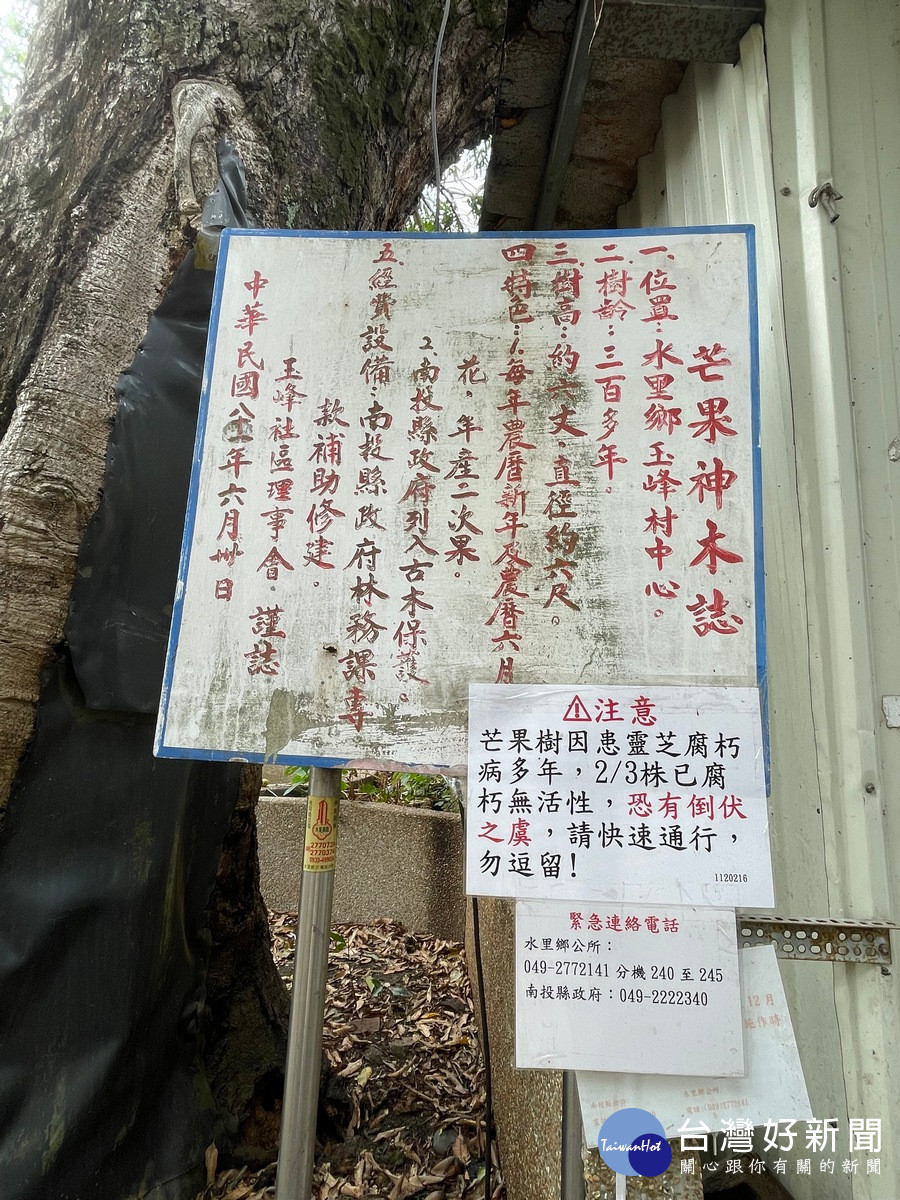 芒果神木誌
一、位置:水里鄉玉峰村中心。
二、樹齡:三百多年。
三、樹高:約六丈,直徑約六尺。
四、特色:1.每年農曆新年及農曆六月
花,年產二次果。
2.南投縣政府列入古木保護。
五、經費設備:南投縣政府林務課專
款補助修建。
玉峰社區理事會 謹誌
中華民國八年六月卅日
⚠注意
芒果樹因患靈芝腐朽
病多年,2/3株已腐
朽無活性,恐有倒伏
之虞,請快速通行,
勿逗留!
1120216
緊急連絡電話
水里鄉公所:
049-2772141 分機 240 至 245
南投縣政府:049-2222340
12月
TaiwanHot
台灣好新聞
關心跟你有關的新聞